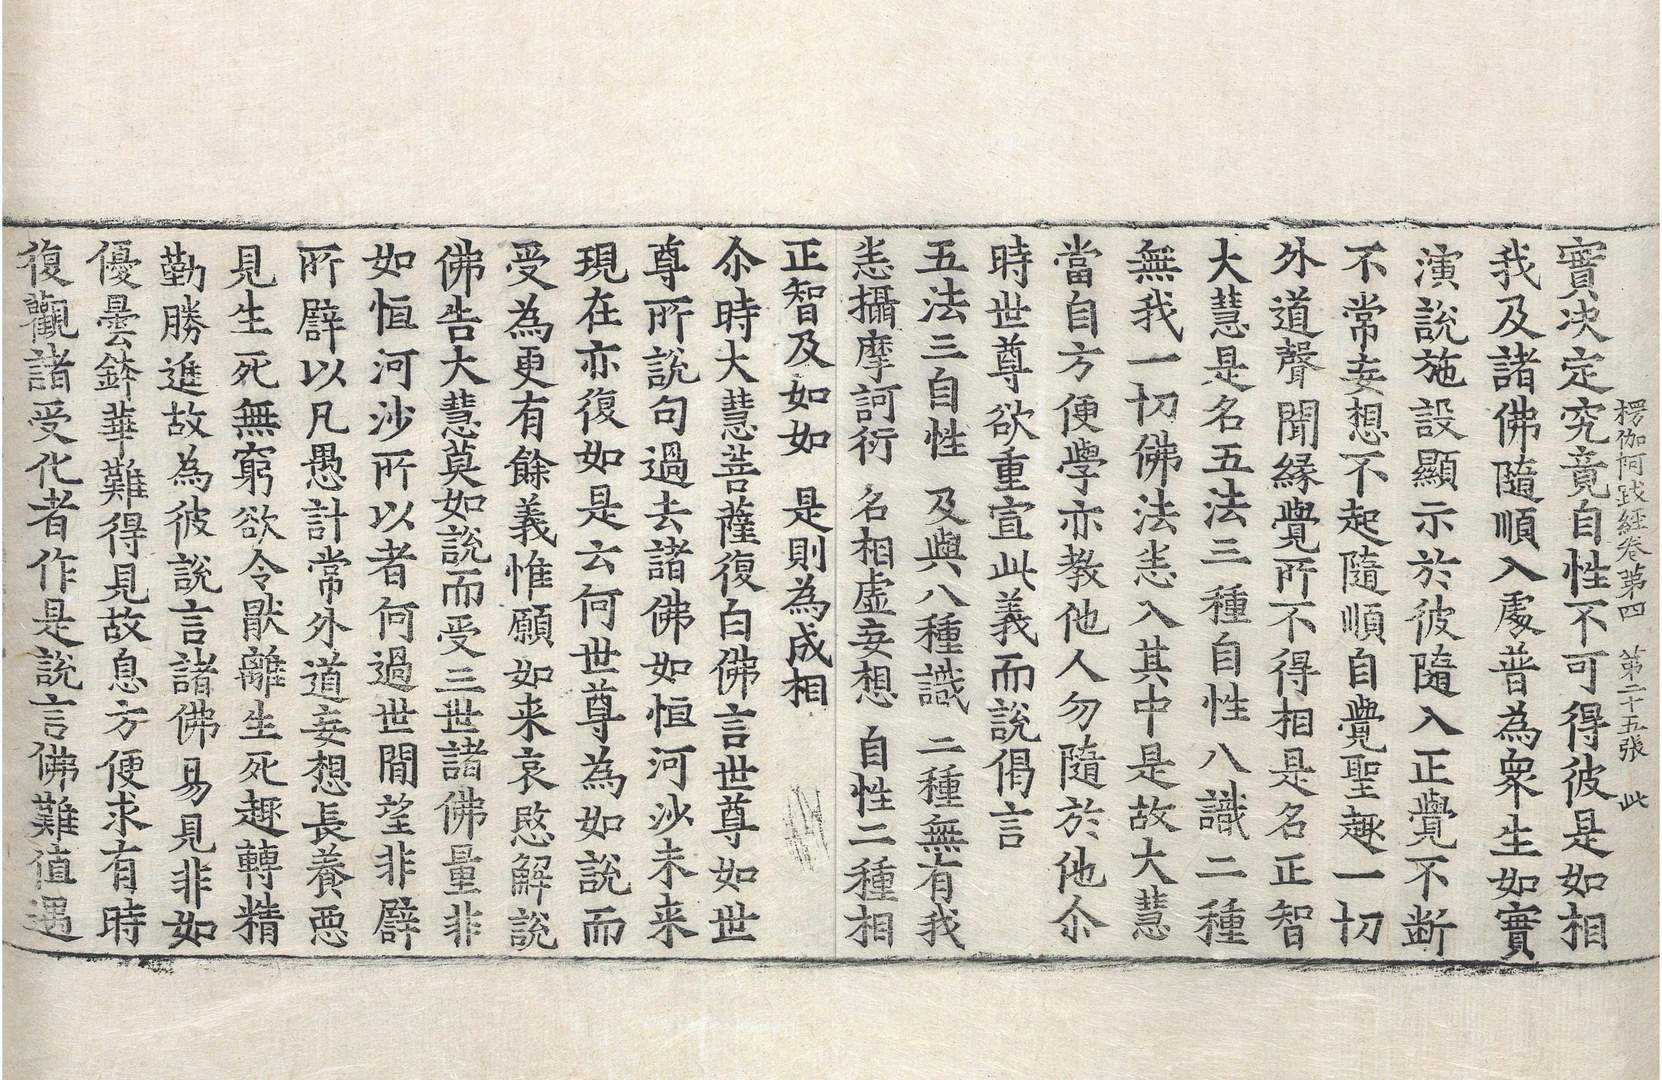 楞伽阿跋經卷第四　第二十五張　此
實决定究竟自性不可得彼是如相
我及諸佛隨順入處普為衆生如實
演說施設顯示於彼隨入正覺不断
不常妄想不起隨順自覺聖趣一切
外道聲聞緣覺所不得相是名正智
大慧是名五法三種自性八識二種
無我一切佛法恚入其中是故大慧
當自方便學亦教他人勿隨於他尒
時世尊欲重宣此義而說偈言
五法三自性　及與八種識　二種無有我
恚攝摩訶衍　名相虛妄想　自性二種相
正智及如如　是則為成相
尒時大慧菩薩復白佛言世尊如世
尊所說句過去諸佛如恒河沙未来
現在亦復如是云何世尊為如說而
受為更有餘義惟願如来哀愍解說
佛告大慧莫如說而受三世諸佛量非
如恒河沙所以者何過世間望非譬
所譬以凡愚計常外道妄想長養惡
見生死無窮欲令猒離生死趣轉精
勤勝進故為彼說言諸佛易見非如
優曇鉢華難得見故息方便求有時
復觀諸受化者作是說言佛難值遇